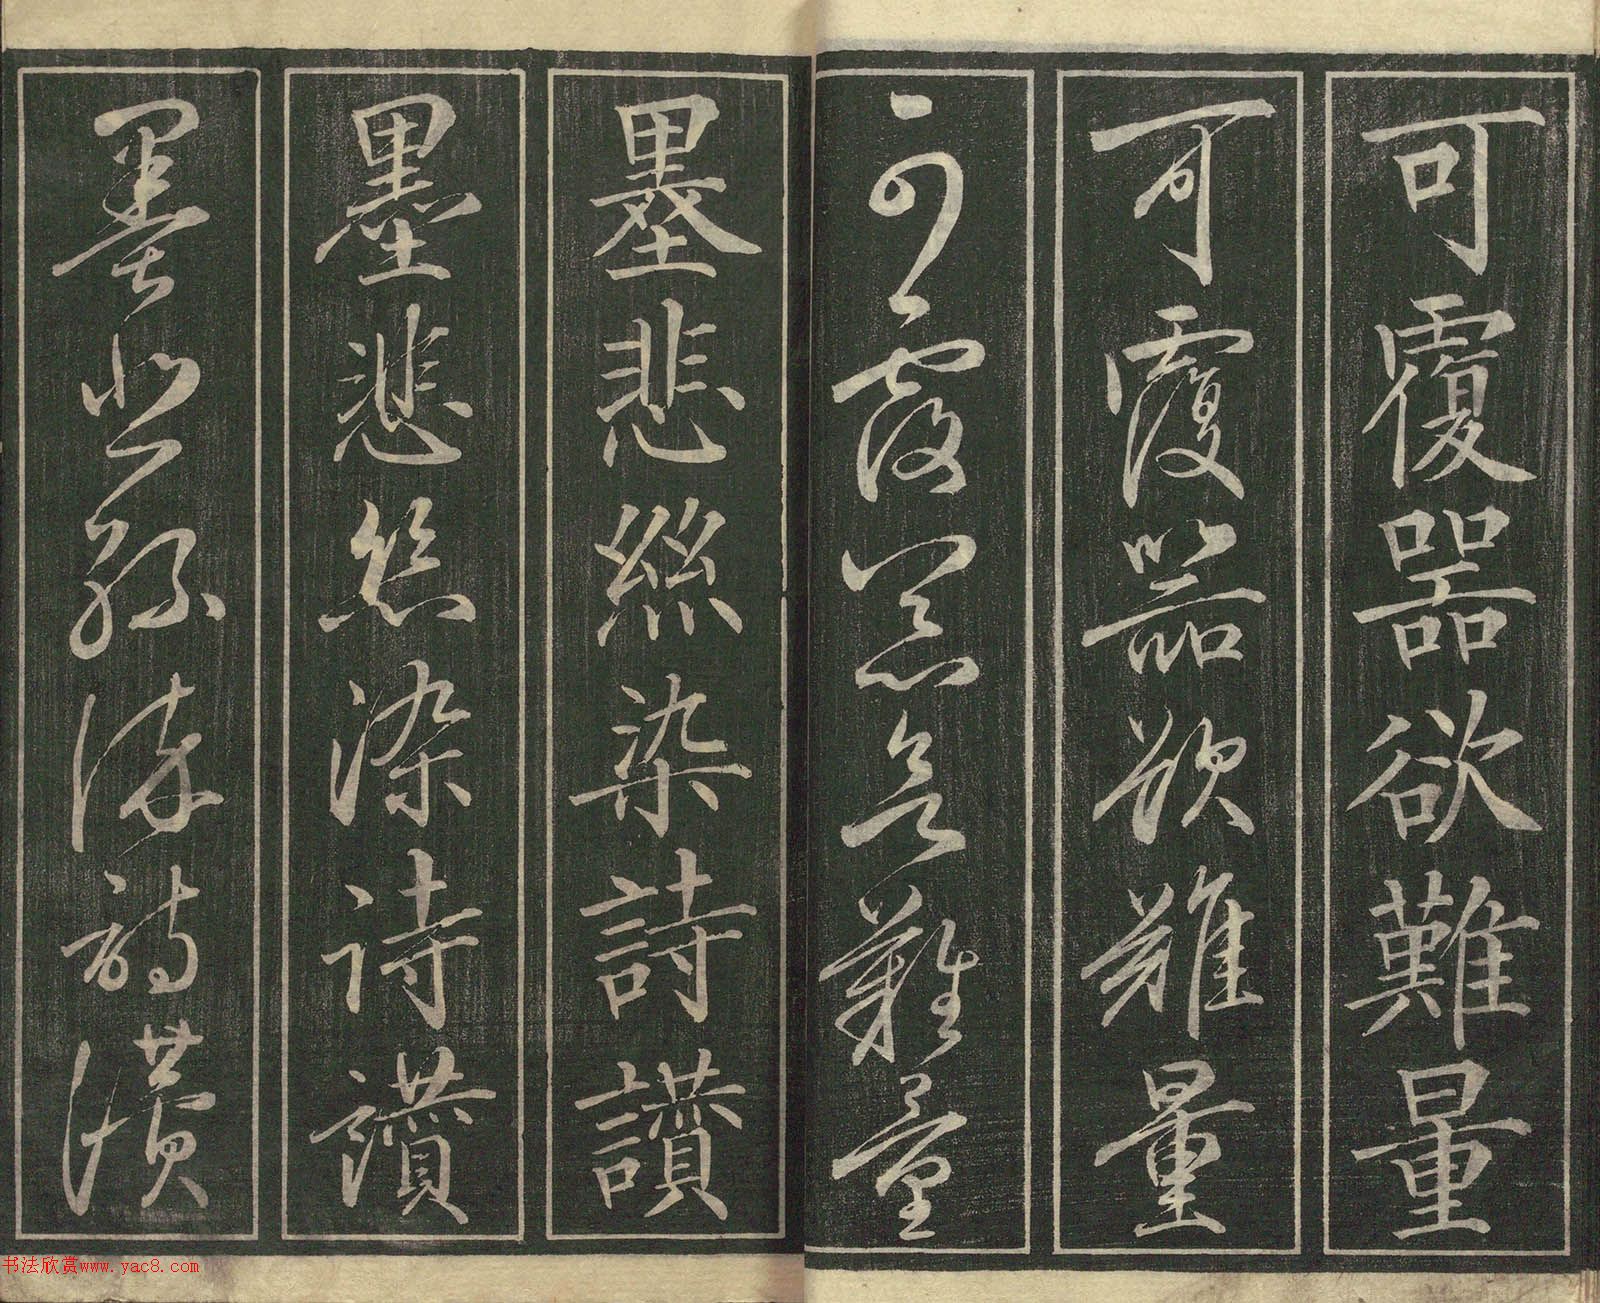 可覆器欲難量
可覆器欲難量
可覆器欲難量
墨悲絲染詩讃
墨悲絲染詩讃
墨悲絲染詩讃
书法欣赏www.yac8.com